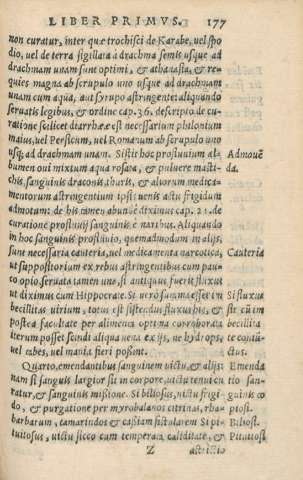 LIBER PRIMVS. 177
non curatur, inter quæ trochisci de Karabe, uel spo
dio, uel de terra sigillata à drachma semis usque ad
drachmam unam sunt optimi, & athanasia, & re-
quies magna ab scrupulo uno usque ad drachmam
unam cum aqua, aut syrupo astringente: aliquando
seruatis legibus, & ordine cap. 36. descripto de cu-
ratione scilicet diarrhææ est necessarium philonium
maius, uel Persicum, uel Romanum ab scrupulo uno
usq; ad drachmam unam. Sistit hoc profluuium al- Admouē
bumen oui mixtum aqua rosata, & puluere masti- da.
chis, sanguinis draconis, thuris, & aliorum medica-
mentorum astringentium ipsi uentis actu frigidum
admotum: de his etiam abundè diximus cap. 21. de
curatione profluuij sanguinis è naribus. Aliquando
in hoc sanguinis profluuio, quemadmodum in alijs,
sunt necessaria cauteria, uel medicamenta narcotica, Cauteria
ut suppositorium ex rebus astringentibus cum pau-
co opio, seruata tamen una, si antiquus fuerit fluxus
ut diximus cum Hippocrate. Si uerò summa esset im Si fluxus
becillitas uirium, totus est sistendus fluxus his, & sit cū im
postea facultate per alimenta optima corroborata becillita
iterum posset scindi aliqua uena ex ijs, ne hydrops, te contū-
uel tabes, uel mania fieri possint. ctus.
Quarto, emendantibus sanguinem uictu, & alijs: Emenda
nam si sanguis largior sit in corpore, uictu tenui cu tio san-
ratur, & sanguinis missione. Si biliosus, uictu frigi- guinis co
do, & purgatione per myrobalanos citrinas, rha- piosi.
barbarum, tamarindos & cassiam fistularem Si pi- Biliosi.
tuitosus, uictu sicco cum temperata caliditate, & Pituitosi
Z astrictio